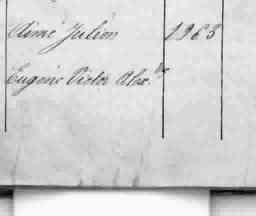 Aimé Julien 1963
Eugène Victor Alex.dre